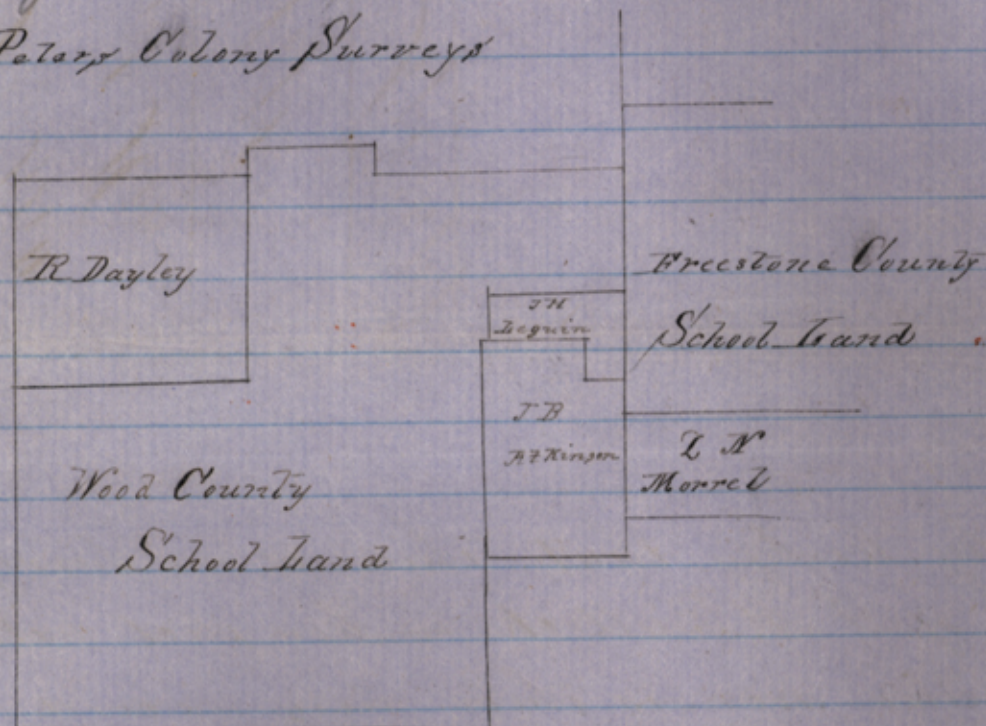 Peters Colony Surveys
R Dayley
Freestone County
School Land
J H
Leguin
J B
Atkinson
Z N
Morrel
Wood County
School Land